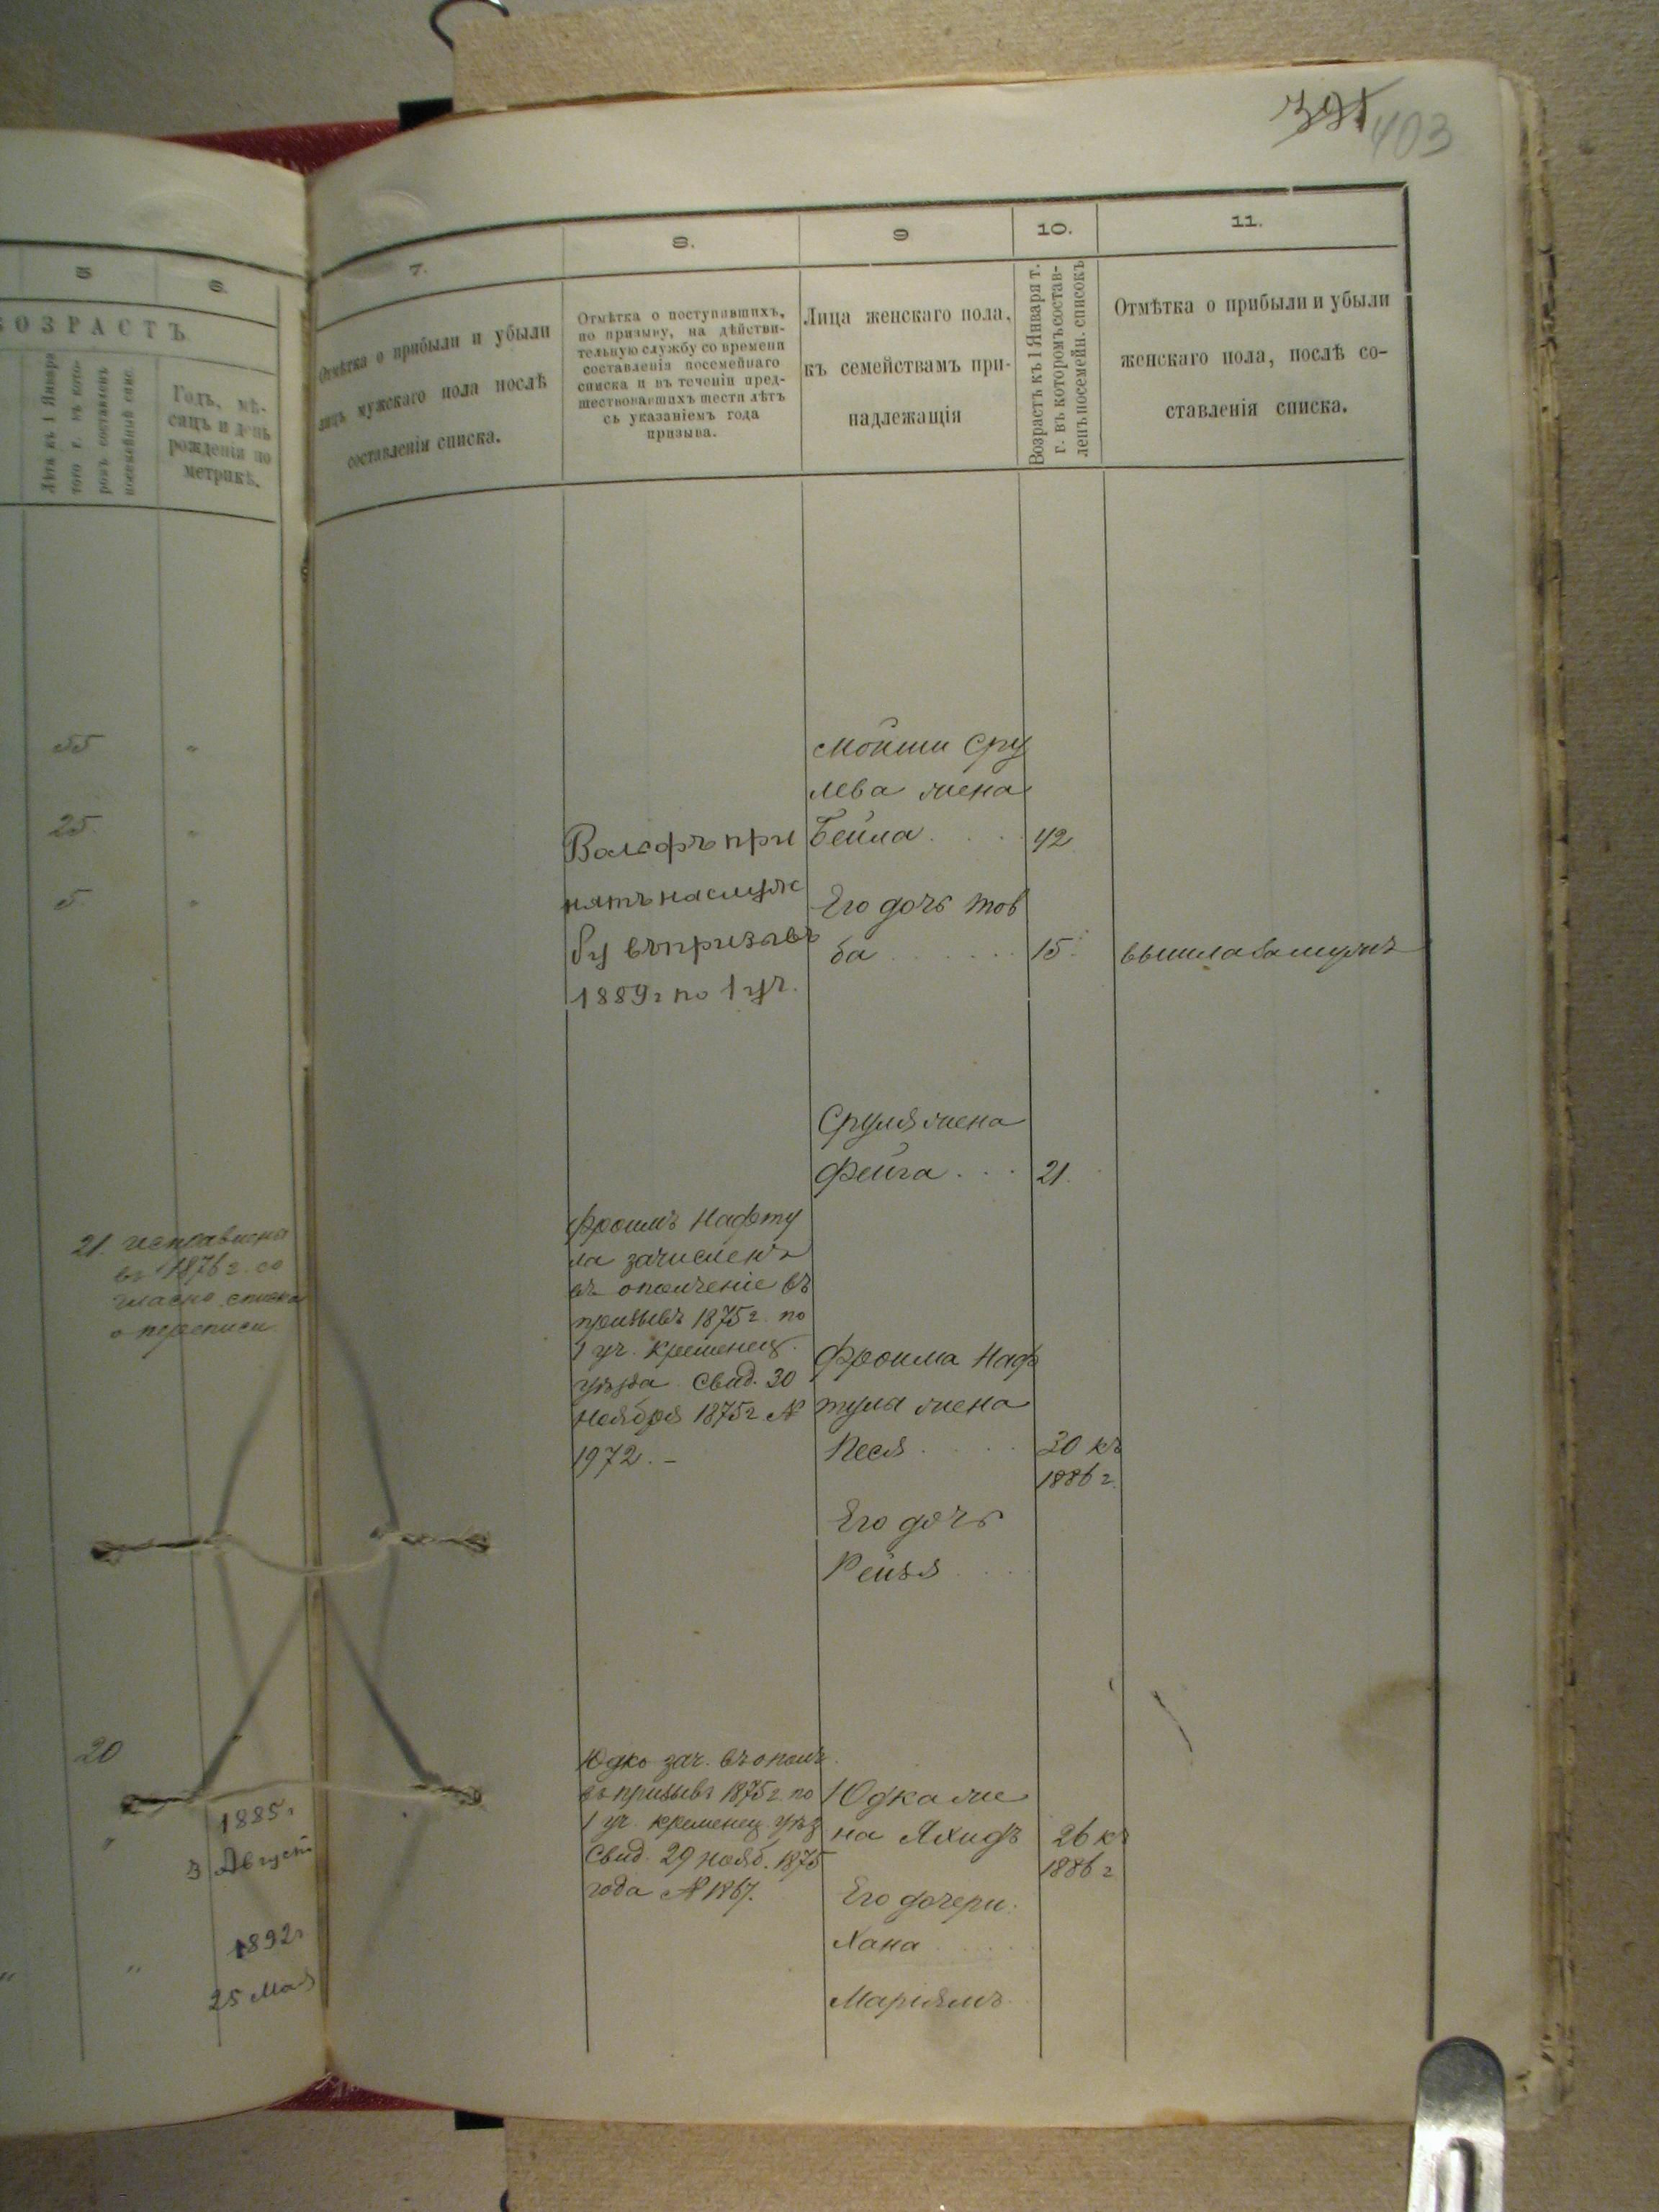 395
403
5
6.
ВОЗРАСТЪ
Лѣта къ 1 Января
того г. въ кото-
ромъ составленъ
посемейный спис.
Годъ, мѣ-
сяцъ и день
рожденія по
метрикѣ.
55 "
25. "
5. "
21. исправлено
въ 1876 г. со
гласно списка
о переписи
20
1885 г
3 Август
1892 г
25 Мая
7.
Отмѣтка о прибыли и убыли
лицъ мужскаго пола послѣ
составленія списка.
8.
Отмѣтка о поступившихъ,
по призыву, на дѣйстви-
тельную службу со времени
составленія посемейнаго
списка и въ теченіи пред-
шествовавшихъ шести лѣтъ
съ указаніемъ года
призыва.
9
Лица женскаго пола,
къ семействамъ при-
надлежащія
10.
Возрастъ къ 1 Января т.
г. въ которомъ состав-
ленъ посемейн. списокъ
11.
Отмѣтка о прибыли и убыли
женскаго пола, послѣ со-
ставленія списка.
Мойши Сру
лева жена
Бейла . . . . 42
Вольфъ при
нятъ на служ
бу въ призывъ
1889 г по 1 уч.
Его дочь Тов
ба . . . . . . 15. вышла замужъ
Сруля жена
Фейга . . . 21.
Фроимъ Нафту
ла зачисленъ
въ ополченіе въ
призывъ 1875 г. по
1 уч. Кременец.
уѣзда. Свид. 30
Ноября 1875 г. №
1972. –
Фроима Наф
тулы жена
Песя . . . . . 30 къ
1886 г.
Его дочь
Рейзя . . . .
Юдко зач. въ ополч.
въ призывъ 1875 г. по
1 уч. Кременец. уѣз
Свид. 29 нояб. 1875
года № 1867.
Юдка же
на Яхидъ 26 къ
1886 г
Его дочери:
Хана . . . . .
Маріямъ